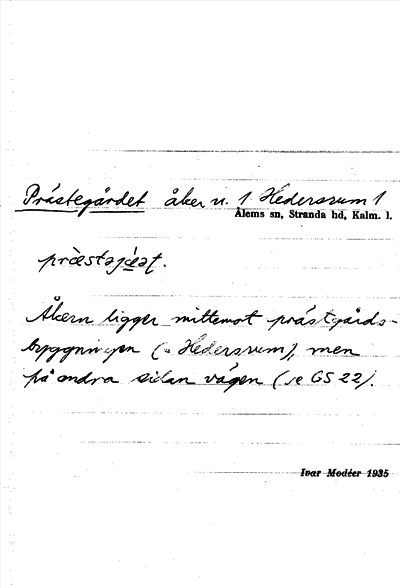 Prästegärdet åker u. 1 Hedersrum 1
Ålems sn, Stranda hd, Kalm. l.
præstəjæ̀ət.
Åkern ligger mittemot prästgårds-
byggningen (= Hedersrum), men
på andra sidan vägen (se GS 22).
Ivar Modéer 1935